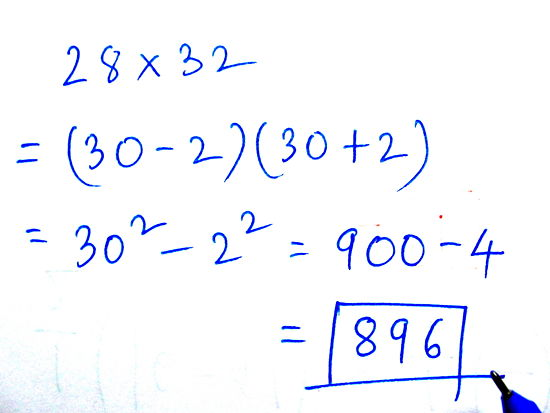 28 × 32
= (30 - 2)(30 + 2)
= 30² - 2² = 900 - 4
= 896